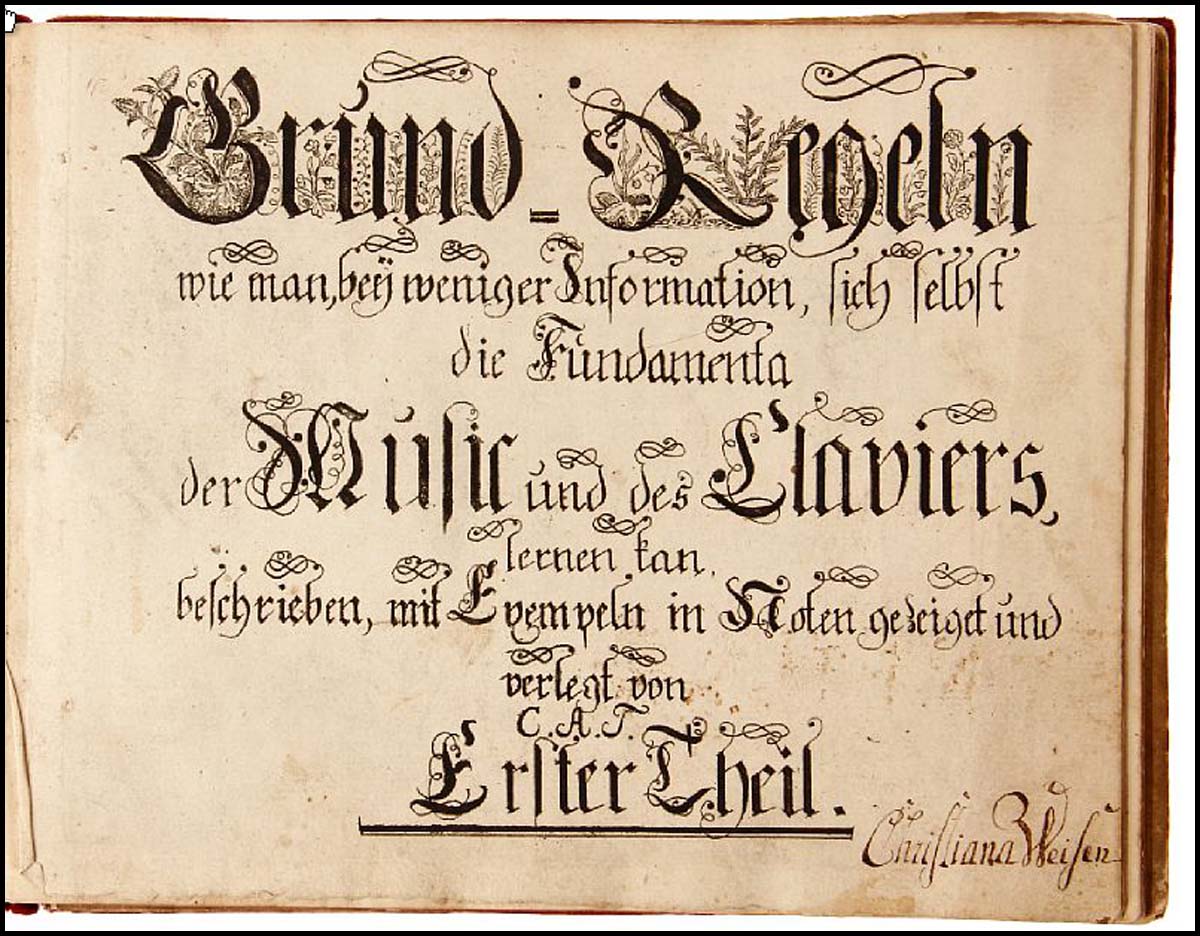 Grund-Regeln
wie man, bey weniger Information, sich selbst
die Fundamenta
der Music und des Claviers,
lernen kan,
beschrieben, mit Exempeln in Noten gezeiget und
verlegt von
C. A. T.
Erster Theil.
Christiana Weisen